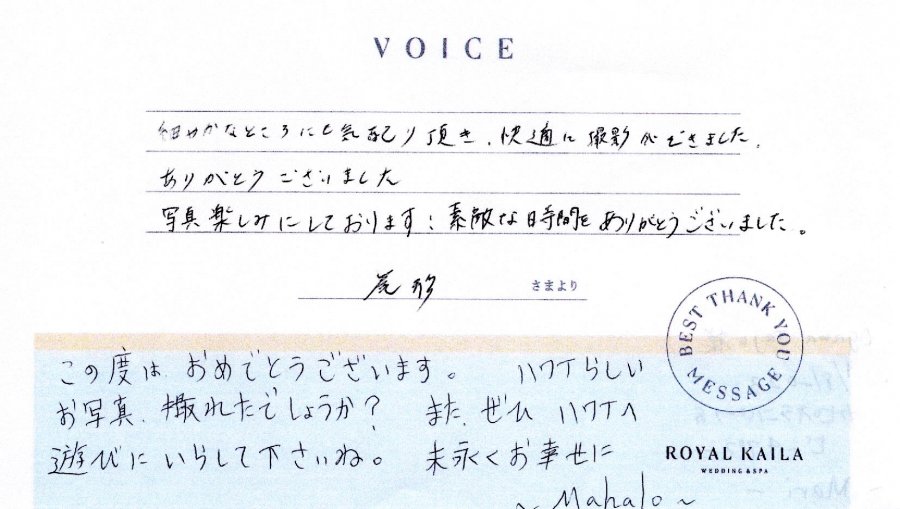 VOICE
細やかなところにも気配り頂き、快適に撮影ができました。
ありがとうございました
写真楽しみにしております！素敵な時間をありがとうございました。
尾形 さまより
BEST THANK YOU MESSAGE
この度は、おめでとうございます。 ハワイらしい
お写真、撮れたでしょうか？ また、ぜひ ハワイへ
遊びにいらして下さいね。 末永くお幸せに
ROYAL KAILA
WEDDING & SPA
～Mahalo～